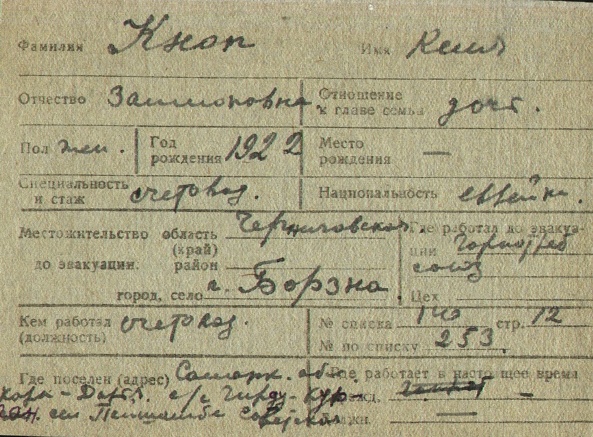 Фамилия Кноп Имя Кеня
Отчество Залмоновна Отношение к главе семьи доч.
Пол жен. Год рождения 1922 Место рождения —
Специальность и стаж счетовод. Национальность еврейка
Местожительство область Черниговская Где работал до эвакуа-
(край) ции
до эвакуации. район союз
город, село г. Борзна. Цех
Кем работал счетовод. № списка 140 стр. 12
(должность) № по списку 253
Где поселен (адрес) Самарк. обл. Где работает в настоящее время
кара-Дарь. с/с —
сел Пайшамба Советская Должн. —